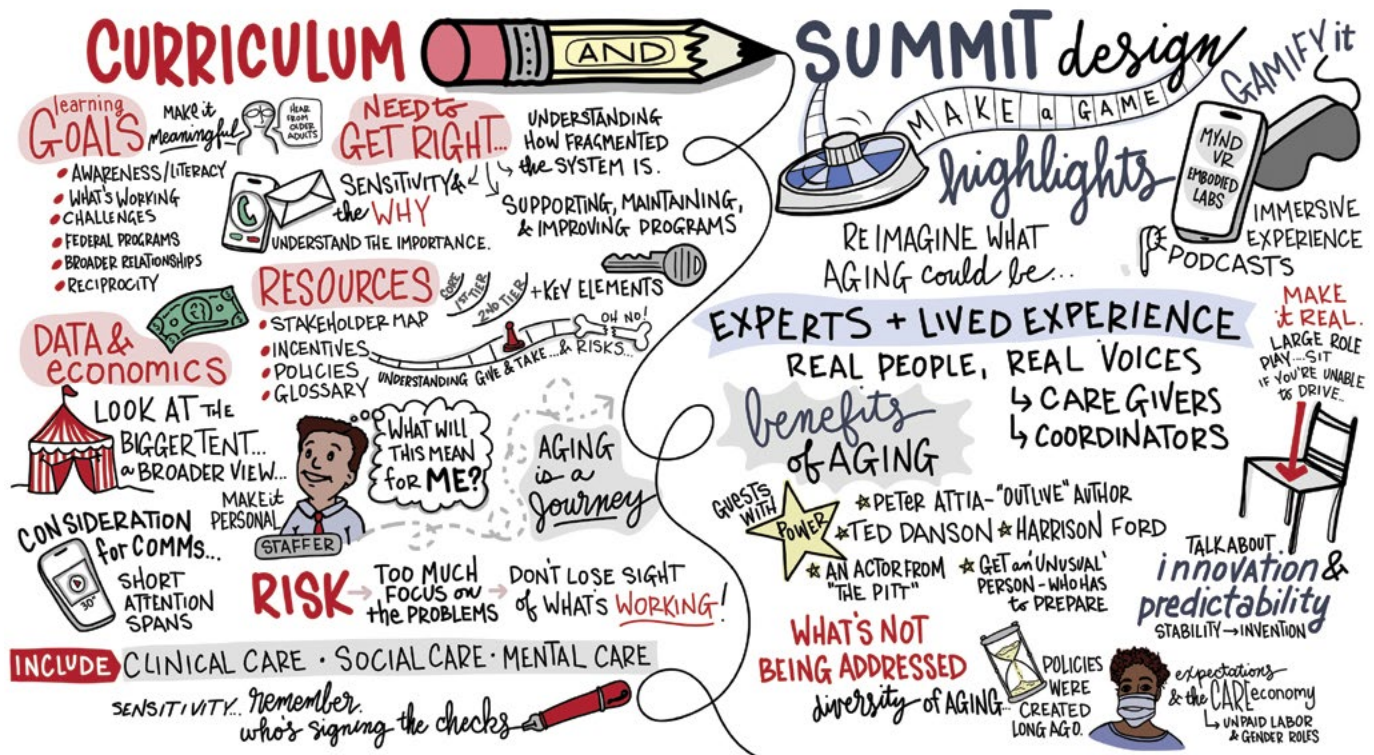 CURRICULUM
AND
SUMMIT design
learning
GOALS
MAKE it
meaningful
HEAR
FROM
OLDER
ADULTS
AWARENESS/LITERACY
WHAT'S WORKING
CHALLENGES
FEDERAL PROGRAMS
BROADER RELATIONSHIPS
RECIPROCITY
NEED to
GET RIGHT...
SENSITIVITY &
the WHY
UNDERSTAND THE IMPORTANCE.
UNDERSTANDING
HOW FRAGMENTED
the SYSTEM IS.
SUPPORTING, MAINTAINING,
& IMPROVING PROGRAMS
RESOURCES
STAKEHOLDER MAP
INCENTIVES
POLICIES
GLOSSARY
CORE
1ST TIER
2ND TIER
+ KEY ELEMENTS
OH NO!
UNDERSTANDING GIVE & TAKE...& RISKS...
DATA &
economics
LOOK AT THE
BIGGER TENT...
a BROADER VIEW...
MAKE it
PERSONAL
STAFFER
WHAT WILL
THIS MEAN
for ME?
AGING
is a
Journey
CONSIDERATION
for COMMS...
30"
SHORT
ATTENTION
SPANS
RISK → TOO MUCH
FOCUS on
the PROBLEMS
→ DON'T LOSE SIGHT
of WHAT'S WORKING!
INCLUDE CLINICAL CARE · SOCIAL CARE · MENTAL CARE
SENSITIVITY... remember
who's signing the checks
MAKE a GAME
highlights
GAMIFY it
MYND
VR
EMBODIED
LABS
IMMERSIVE
EXPERIENCE
PODCASTS
REIMAGINE WHAT
AGING could be...
EXPERTS + LIVED EXPERIENCE
REAL PEOPLE, REAL VOICES
↳ CARE GIVERS
↳ COORDINATORS
MAKE
it REAL.
LARGE ROLE
PLAY....SIT
IF YOU'RE UNABLE
to DRIVE...
benefits
of AGING
GUESTS
WITH
POWER
PETER ATTIA - "OUTLIVE" AUTHOR
TED DANSON
HARRISON FORD
AN ACTOR FROM
"THE PITT"
GET an 'UNUSUAL'
PERSON - WHO HAS
to PREPARE
TALK ABOUT
innovation &
predictability
STABILITY → INVENTION
WHAT'S NOT
BEING ADDRESSED
diversity of AGING...
POLICIES
WERE
CREATED
LONG AGO.
expectations
& the CARE economy
↳ UNPAID LABOR
& GENDER ROLES